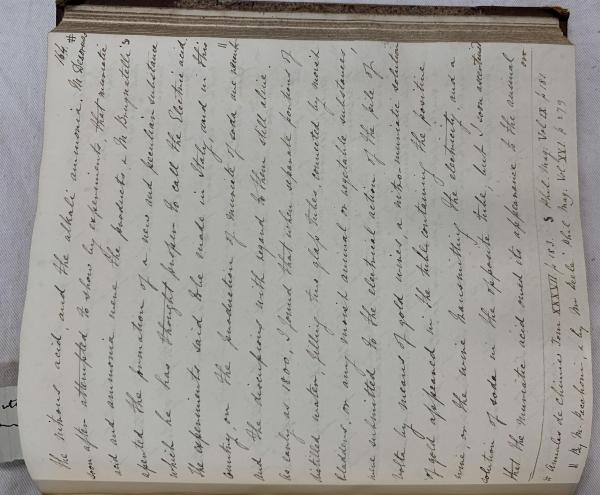 164
the nitrous acid, and the alkali ammonia. M. Desormes #
soon after attempted to shew by experiments, that muriatic
acid and ammonia were the products & M. Brugnatelli §
asserted the formation of a new and peculiar substance
which he has thought proper to call the Electric acid.
The experiments said to be made in Italy, and in this
country on the production of muriate of soda are
and the discussions with regard to them still alive.
As early as 1800, I found that when separate portions of
distilled water, filling two glass tubes, connected by moist
bladders, or any moist animal or vegetable substances,
were submitted to the electrical action of the pile of
Volta by means of gold wires a nitro-muriatic solution
of gold appeared in the tube containing the positive
wire, or the wire transmitting the electricity and a
solution of soda in the opposite tube, but I soon ascertained
that the muriatic acid owed its appearance to the animal
or
# Annales de Chimie Tom XXXVII p § Phil. Mag. Vol IX p 181
" By M. Pacchioni, & by Mr Peele Phil Mag: Vol XXI p 279